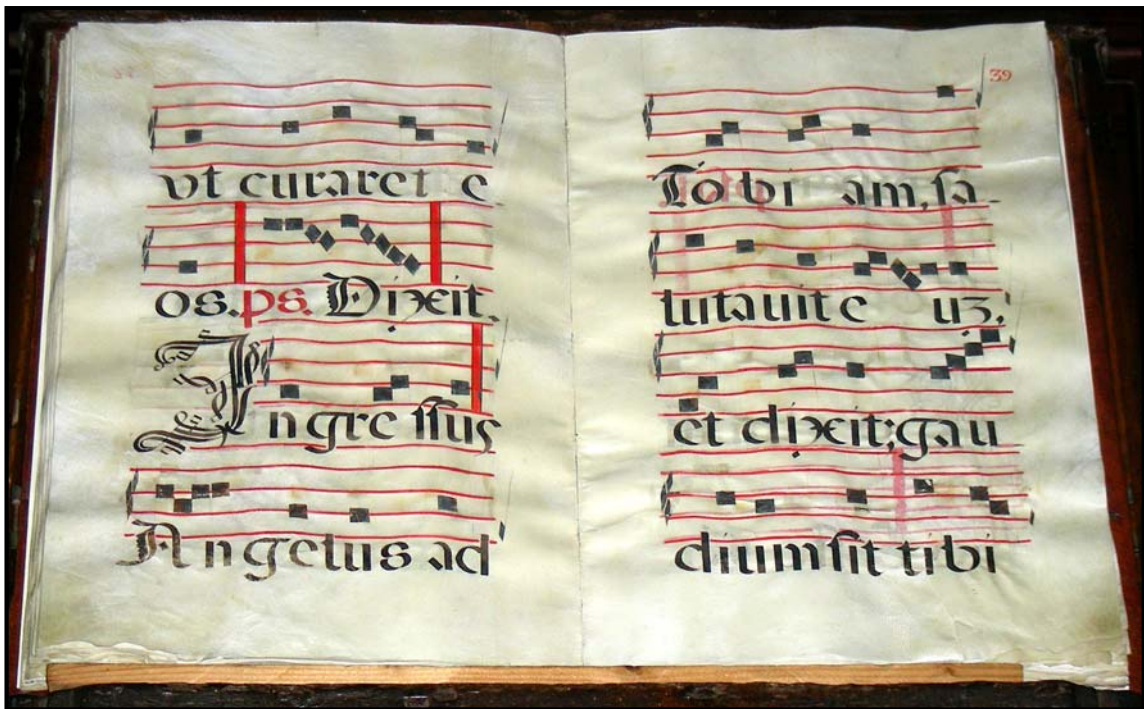 vt curaret e
os. ps. Dixit.
Ingressus
Angelus ad
39
Tobi am, sa
lutauit e uz.
et dixit; gau
dium sit tibi